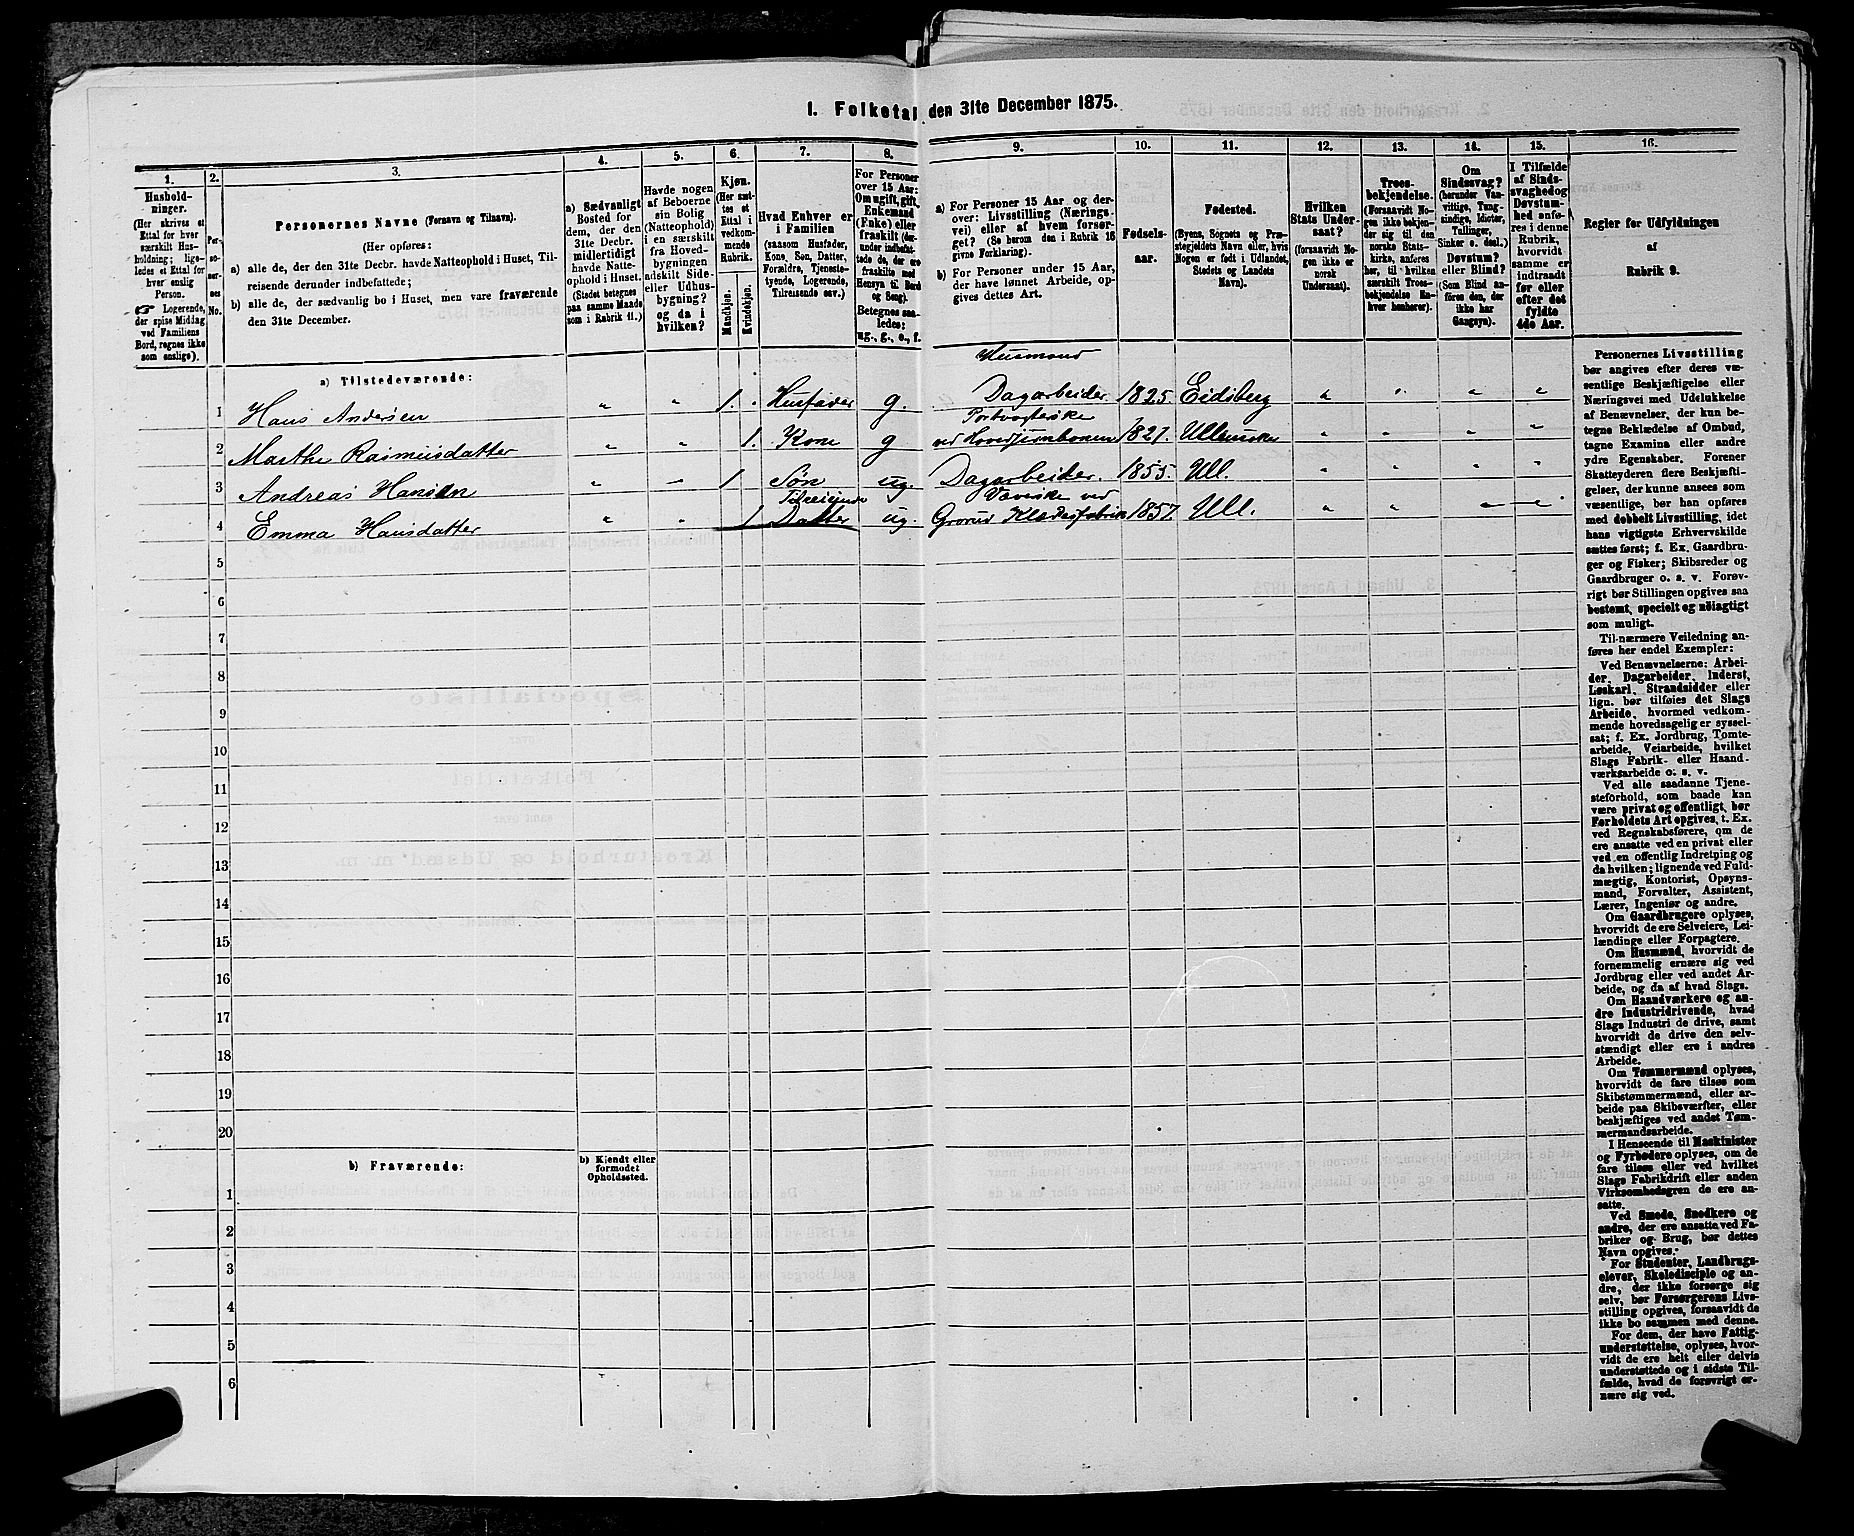 I. Folketal den 31te December 1875.
1. 2. 3. 4. 5. 6. 7. 8. 9. 10. 11. 12. 13. 14. 15. 16.
Hushold-
ninger.
(Her skrives et
Ettal for hver
særskilt Hus-
holdning; lige-
ledes et Ettal for
hver enslig
Person.
☞ Logerende,
der spise Middag
ved Familiens
Bord, regnes ikke
som enslige).
Per-
so-
ner-
nes
No.
Personernes Navne (Fornavn og Tilnavn).
(Her opføres:
a) alle de, der den 31te Decbr. havde Natteophold i Huset, Til-
reisende derunder indbefattede;
b) alle de, der sædvanlig bo i Huset, men vare fraværende
den 31te December.
a) Sædvanligt
Bosted for
dem, der den
31te Decbr.
midlertidigt
havde Natte-
ophold i Huset.
(Stedet betegnes
paa samme Maade
som i Rubrik 11.)
Havde nogen
af Beboerne
sin Bolig
(Natteophold)
i en særskilt
fra Hoved-
bygningen
adskilt Side-
eller Udhus-
bygning?
og da i
hvilken?
Kjøn.
(Her sæt-
tes et
Ettal i
vedkom-
mende
Rubrik.
Mandkjøn.
Kvindekjøn.
Hvad Enhver er
i Familien
(saasom Husfader,
Kone, Søn, Datter,
Forældre, Tjeneste-
tyende, Logerende,
Tilreisende osv.)
For Personer
over 15 Aar:
Om ugift, gift,
Enkemand
(Enke) eller
fraskilt (der-
under indbefat-
tede de, der ere
fraskilte med
Hensyn til Bord
og Seng).
Betegnes saa-
ledes:
ug., g., e., f.
a) For Personer 15 Aar og der-
over: Livsstilling (Nærings-
vei) eller af hvem forsør-
get? (Se herom den i Rubrik 16
givne Forklaring).
b) For Personer under 15 Aar,
der have lønnet Arbeide, op-
gives dettes Art.
Fødsels-
aar.
Fødested.
(Byens, Sognets og Præ-
stegjeldets Navn eller, hvis
Nogen er født i Udlandet,
Stedets og Landets
Navn).
Hvilken
Stats Under-
saat?
(forsaavidt No-
gen ikke er
norsk
Undersaat).
Troes-
bekjendelse.
(Forsaavidt No-
gen ikke bekjen-
der sig til den
norske Stats-
kirke, anføres
her, til hvilken
særskilt Troes-
bekjendelse En-
hver henhører).
Om
Sindssvag?
(herunder Van-
vittige, Tung-
sindige, Idioter,
Tullinger,
Sinker o. desl.)
Døvstum?
eller Blind?
(Som Blind an-
føres den, der
ikke har
Gangsyn).
I Tilfælde
af Sinds-
svaghed og
Døvstum-
hed anfø-
res i denne
Rubrik,
hvorvidt
samme er
indtraadt
før eller
efter det
fyldte
4de Aar.
Regler før Udfyldningen
af
Rubrik 9.
a) Tilstedeværende:
Husmand
1 Hans Andersen " " 1. . Husfader g. Dagarbeider 1825. Eidsberg " " " "
2 Marthe Rasmusdatter " " 1. Kone g ved Hovedjernbanen 1821. Ullensaker " " " "
3 Andreas Hansen " " 1 Søn ug. Dagarbeider. 1855. Ull. " " " "
Tilreisende Væverske ved
4 Emma Hansdatter " " 1 Datter ug. Grorud Klædesfabrik 1857. Ull. " " " "
5
6
7
8
9
10
11
12
13
14
15
16
17
18
19
20
b) Fraværende:
b) Kjendt eller
formodet
Opholdssted.
1
2
3
4
5
6
Personernes Livsstilling
bør angives efter deres væ-
sentlige Beskjæftigelse eller
Næringsvei med Udelukkelse
af Benævnelser, der kun be-
tegne Beklædelse af Ombud,
tagne Examina eller andre
ydre Egenskaber. Forener
Skatteyderen flere Beskjæfti-
gelser, der kunne ansees som
væsentlige, bør han opføres
med dobbelt Livsstilling, idet
hans vigtigste Erhvervskilde
sættes først; f. Ex. Gaardbru-
ger og Fisker; Skibsreder og
Gaardbruger o. s. v. Forøv-
rigt bør Stillingen opgives saa
bestemt, specielt og nøiagtigt
som muligt.
Til nærmere Veiledning an-
føres her endel Exempler:
Ved Benævnelserne: Arbei-
der, Dagarbeider, Inderst,
Løskarl, Strandsidder eller
lign. bør tilføies det Slags
Arbeide, hvormed vedkom-
mende hovedsagelig er syssel-
sat; f. Ex. Jordbrug, Tomte-
arbeide, Veiarbeide, hvilket
Slags Fabrik- eller Haand-
værksarbeide o. s. v.
Ved alle saadanne Tjene-
steforhold, som baade kan
være privat og offentligt, bør
Forholdets Art opgives, t. Ex.
ved Regnskabsførere, om de
ere ansatte ved en privat eller
ved en offentlig Indretning og
da hvilken; lignende ved Fuld-
mægtig, Kontorist, Opsyns-
mand, Forvalter, Assistent,
Lærer, Ingeniør og andre.
Om Gaardbrugere oplyses,
hvorvidt de ere Selveiere, Lei-
lændinge eller Forpagtere.
Om Husmænd, hvorvidt de
fornemmelig ernære sig ved
Jordbrug eller ved andet Ar-
beide, og da af hvad Slags.
Om Haandværkere og an-
dre Industridrivende, hvad
Slags Industri de drive, samt
hvorvidt de drive den selv-
stændigt eller ere i andres
Arbeide.
Om Tømmermænd oplyses,
hvorvidt de fare tilsøs som
Skibstømmermænd, eller ar-
beide paa Skibsværfter, eller
beskjæftiges ved andet Tøm-
mermandsarbeide.
I Henseende til Maskinister
og Fyrbødere oplyses, om de
fare tilsøs eller ved hvilket
Slags Fabrikdrift eller anden
Virksomhedsgren de ere an-
satte.
Ved Smede, Snedkere og
andre, der ere ansatte ved Fa-
briker og Brug, bør dettes
Navn opgives.
For Studenter, Landbrugs-
elever, Skoledisciple og an-
dre, der ikke forsørge sig
selv, bør Forsørgerens Livs-
stilling opgives, forsaavidt de
ikke bo sammen med denne.
For dem, der have Fattig-
understøttelse, oplyses, hvor-
vidt de ere helt eller delvis
understøttede og i sidste Til-
fælde, hvad de forøvrigt er-
nære sig ved.